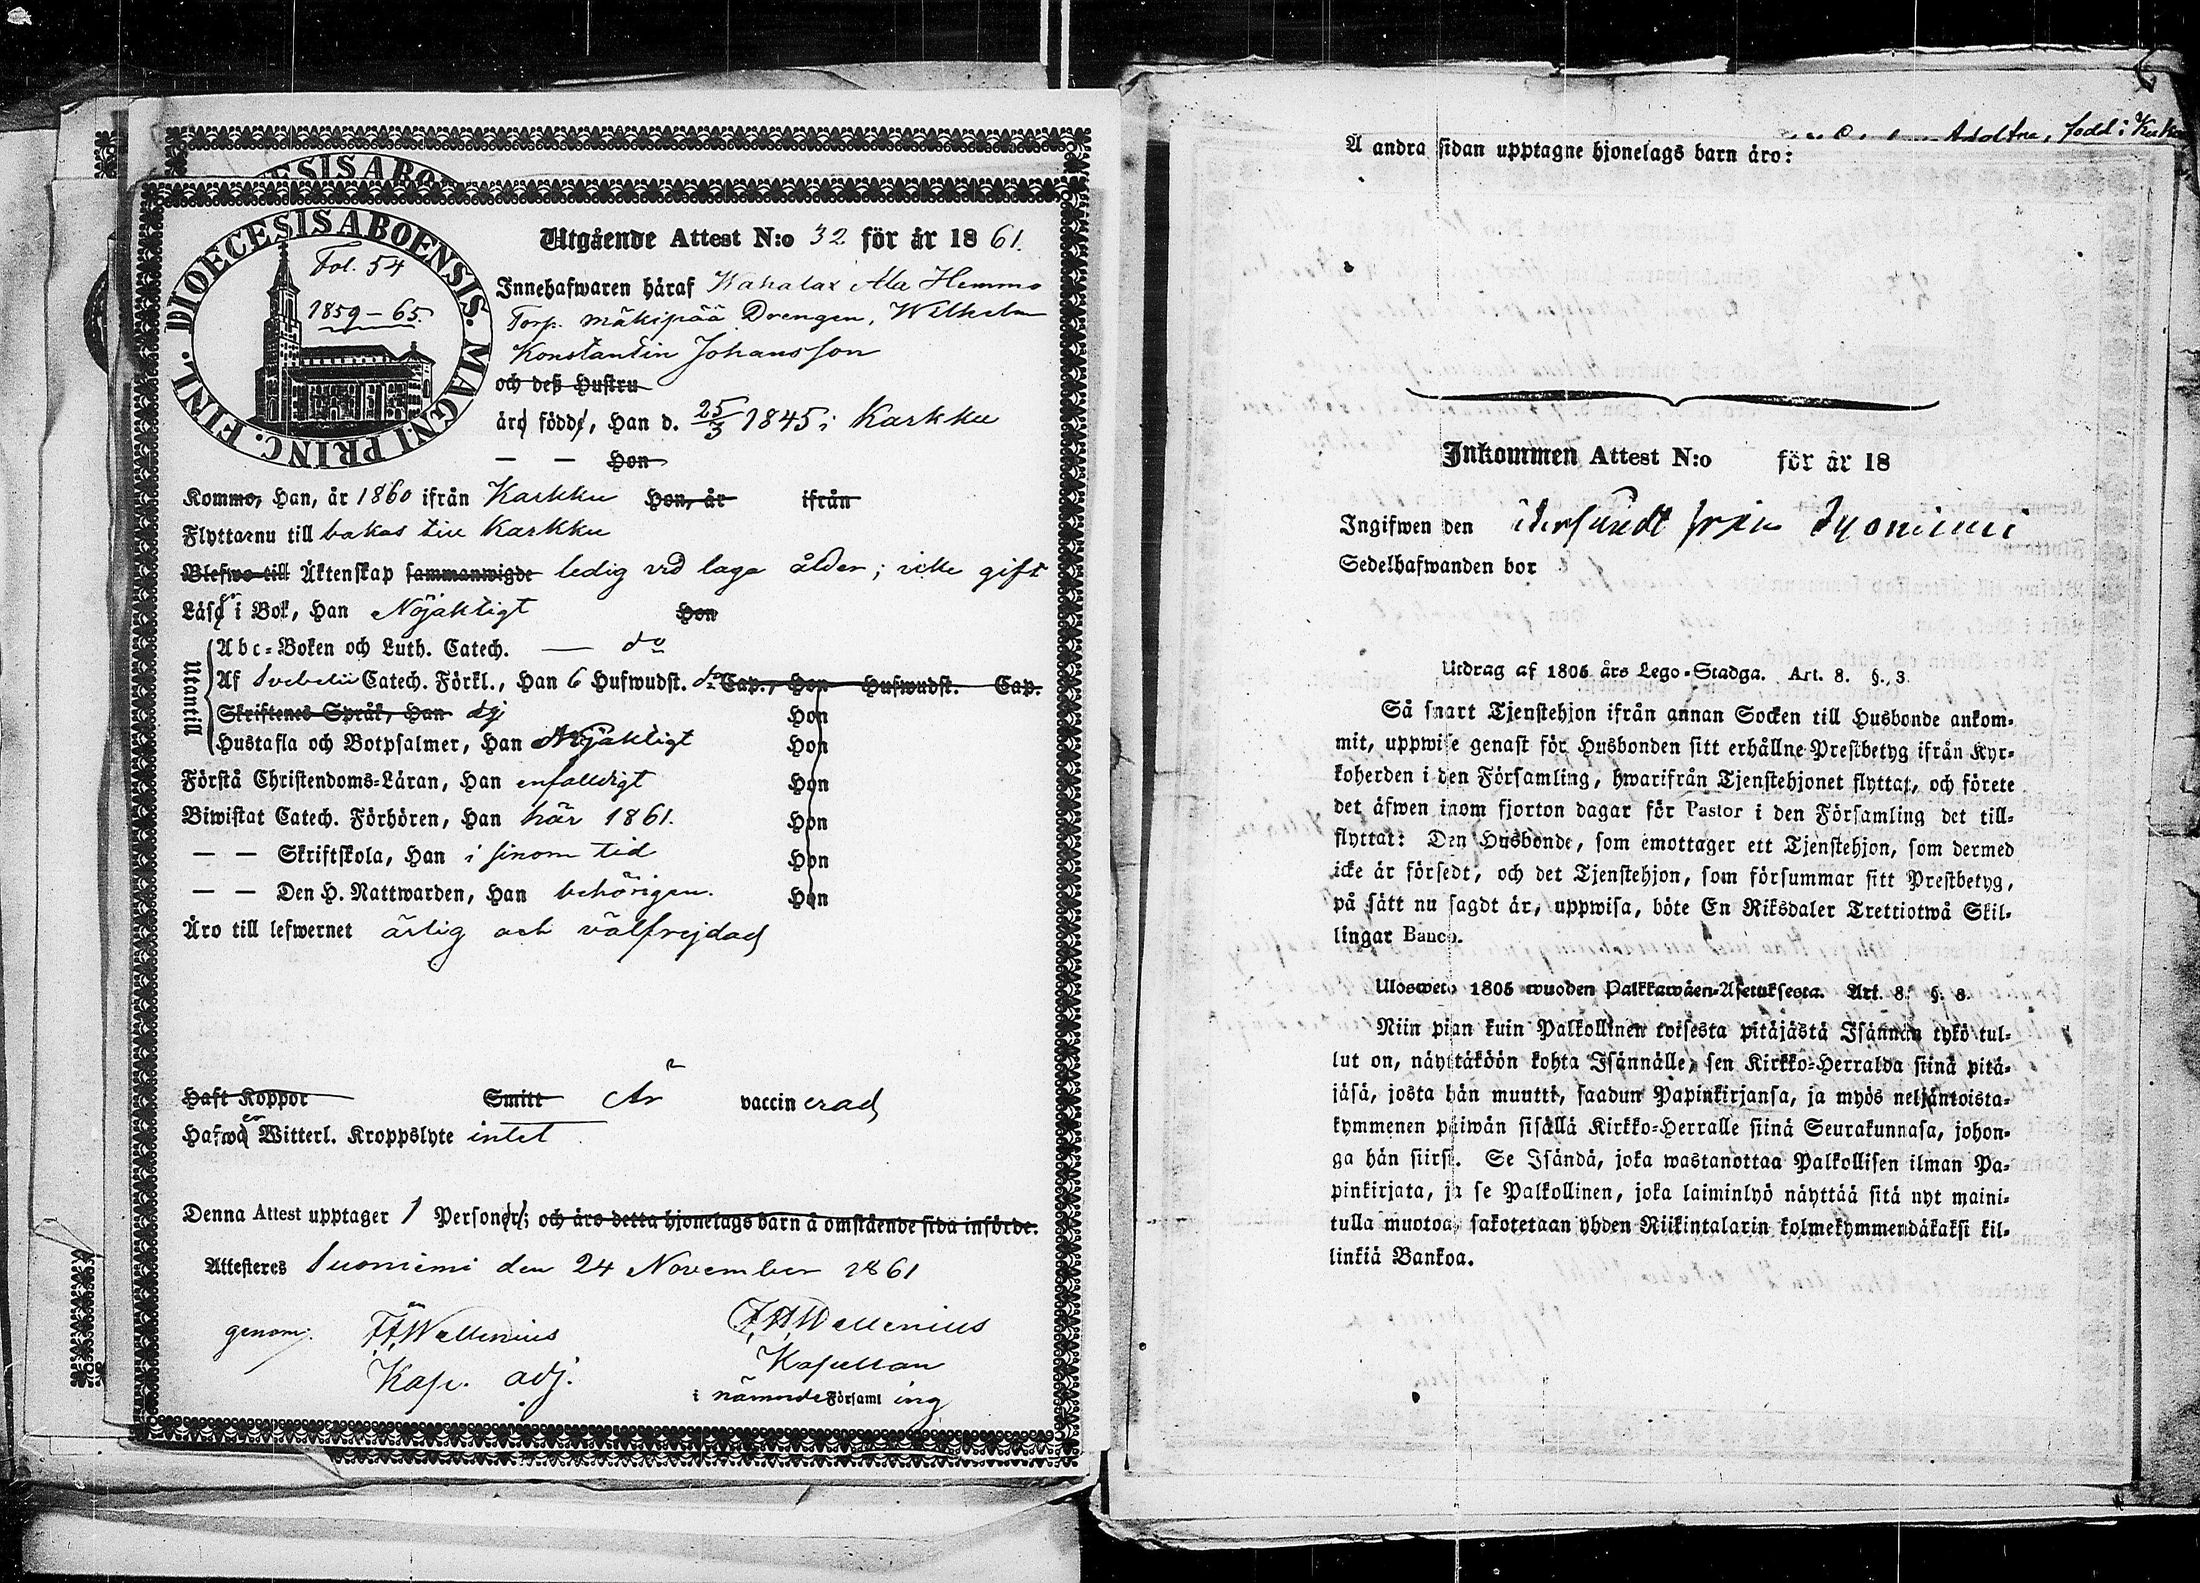 DIOECESIS ABOENSIS. MAGNI PRINC. FINL.
Fol. 54
1859-65.
Utgående Attest N:o 32 för år 1861.
Innehafwaren häraf Kahalax Ala Hemmo
Torp. Mäkipää Drengen, Wilhelm
Konstantin Johansson
och deß Hustru
äro födde, Han d. 25/3 1845 i Karkku
— — Hon
Kommo, Han, år 1860 ifrån Karkku Hon, år ifrån
Flyttar nu till bakas till Karkku
Blefwo till Äktenskap sammanwigde ledig vid laga ålder; icke gift
Läser i Bok, Han Nöjaktigt Hon
Utantill
Abc-Boken och Luth. Catech. — do
Af Svebelii Catech. Förkl., Han 6 Hufwudst. Cap., Hon Hufwudst. Cap.
Skriftenes Språk, Han ej Hon
Hustafla och Botpsalmer, Han Nöjaktigt Hon
Förstå Christendoms-Läran, Han enfaldigt Hon
Biwistat Catech. Förhören, Han här 1861. Hon
— — Skriftskola, Han i sinom tid Hon
— — Den H. Nattwarden, Han behörigen. Hon
Äro till lefwernet ärlig och välfrejdad
Haft Koppor Smitt Är vaccinerad
Hafwer Witterl. Kroppslyte intet
Denna Attest upptager 1 Personer; och äro detta hjonelags barn å omstående sida införde.
Attesteres Suoniemi den 24 November 1861
genom: F.F.Wallenius
Kap. adj.
F.H.Wallenius
Kapellan
i nämnde Församling
född i
Å andra sidan upptagne hjonelags barn äro:
Inkommen Attest N:o för år 18
Ingifwen den från
Sedelhafwanden bor
Utdrag af 1805 års Lego-Stadga. Art. 8. §. 3.
Så snart Tjenstehjon ifrån annan Socken till Husbonde ankom-
mit, uppwise genast för Husbonden sitt erhållne Prestbetyg ifrån Kyr-
koherden i den Församling, hwarifrån Tjenstehjonet flyttat, och förete
det äfwen inom fjorton dagar för Pastor i den Församling det till-
flyttat: Den Husbonde, som emottager ett Tjenstehjon, som dermed
icke är försedt, och det Tjenstehjon, som försummar sitt Prestbetyg,
på sätt nu sagdt är, uppwisa, böte En Riksdaler Trettiotwå Skil-
lingar Banco.
Ulosweto 1805 wuoden Palkkawäen-Asetuksesta. Art. 8. §. 3.
Niin pian kuin Palkollinen toisesta pitäjästä Isännän tykö tul-
lut on, näyttäköön kohta Isännälle, sen Kirkko-Herralda siinä pitä-
jäsä, josta hän muutti, saadun Papinkirjansa, ja myös neljäntoista-
kymmenen päiwän sisällä Kirkko-Herralle siinä Seurakunnasa, johon-
ga hän siirsi. Se Isändä, joka wastanottaa Palkollisen ilman Pa-
pinkirjata, ja se Palkollinen, joka laiminlyö näyttää sitä nyt maini-
tulla muotoa, sakotetaan yhden Riikintalarin kolmekymmendäkaksi kil-
linkiä Bankoa.